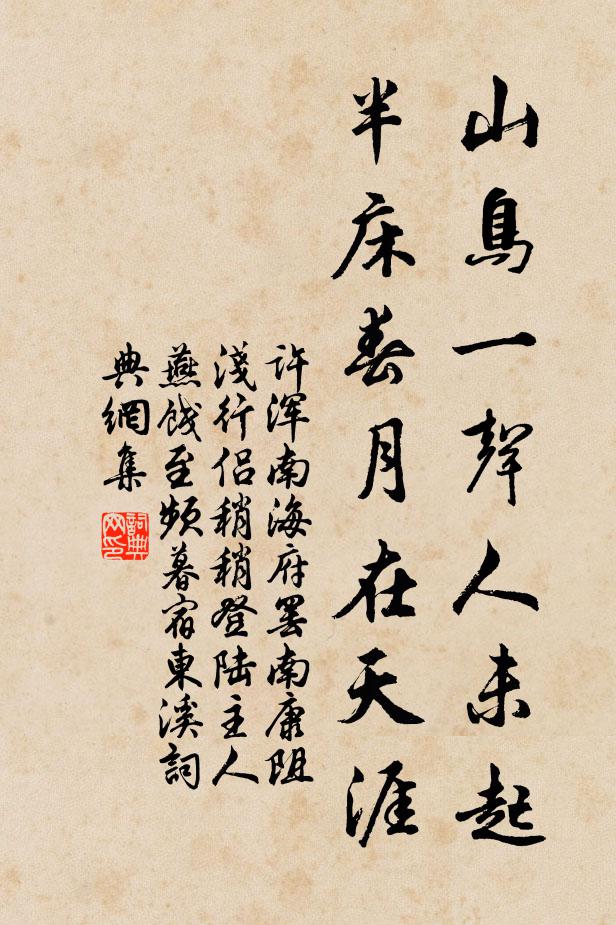 山鳥一聲人未起
半床春月在天涯
許渾南海府罷南康阻
淺行侶稍稍登陸主人
燕餞至頻暮宿東溪詞
典網集
詞典
网印